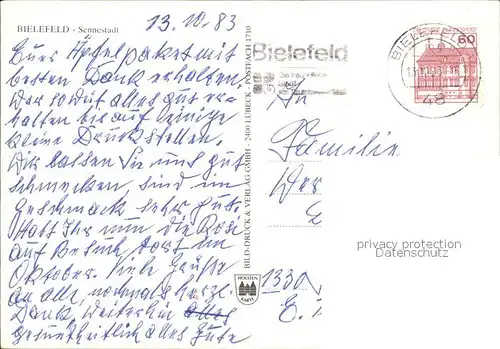 BIELEFELD - Sennestadt
13.10.83
Euer Äpfelpaket mit
besten Dank erhalten.
War soweit alles gut er-
halten bis auf einige
kleine Druckstellen.
Wir lassen sie uns gut
schmecken, sind im
Geschmack sehr gut.
Habt Ihr nun die Rose
auf Besuch dort im
Oktober. Viele Grüße
an alle, nochmals herzl.
Dank, weiterhin alles
gesundheitlich alles Gute
BILD-DRUCK & VERLAG GMBH - 2400 LÜBECK - POSTFACH 1710
HOLSTEN
KARTE
Bielefeld
BIELEFELD
48
60
An
Familie
1330
privacy protection
Datenschutz